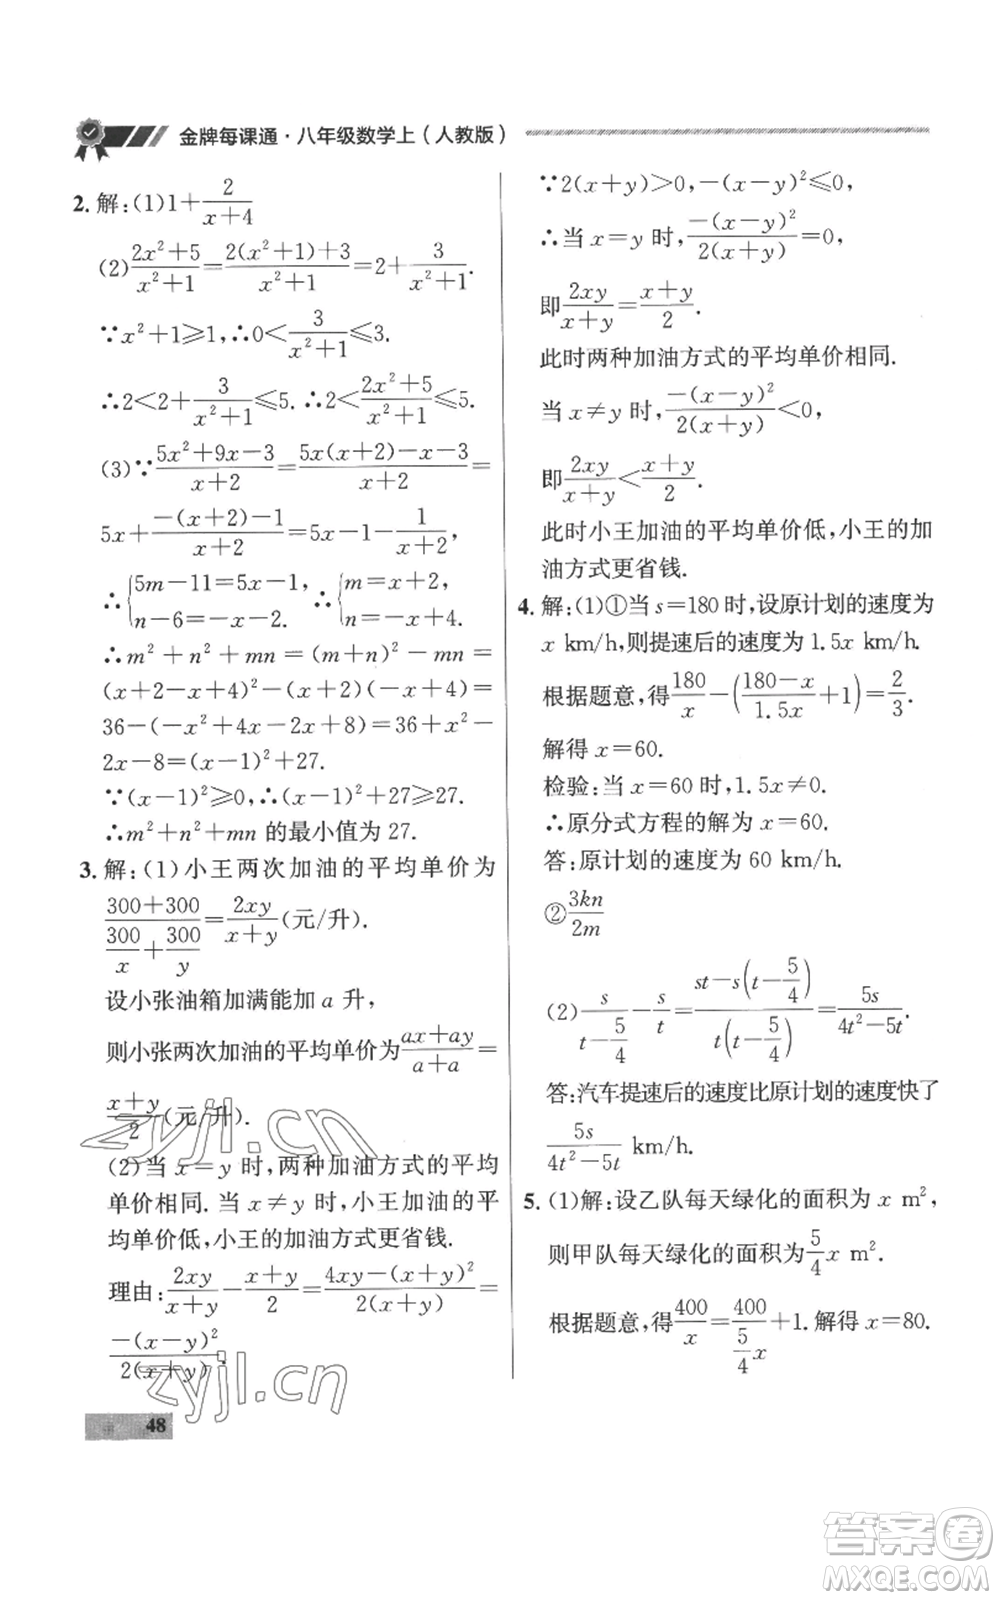 金牌每课通·八年级数学上(人教版)
2.解:(1)1+2/(x+4)
(2)(2x²+5)/(x²+1)=(2(x²+1)+3)/(x²+1)=2+3/(x²+1).
∵x²+1⩾1,∴0<3/(x²+1)⩽3.
∴2<2+3/(x²+1)⩽5.∴2<(2x²+5)/(x²+1)⩽5.
(3)∵(5x²+9x-3)/(x+2)=(5x(x+2)-x-3)/(x+2)=
5x+(-(x+2)-1)/(x+2)=5x-1-1/(x+2),
∴{5m-11=5x-1, n-6=-x-2. ∴{m=x+2, n=-x+4.
∴m²+n²+mn=(m+n)²-mn=
(x+2-x+4)²-(x+2)(-x+4)=
36-(-x²+4x-2x+8)=36+x²-
2x-8=(x-1)²+27.
∵(x-1)²⩾0,∴(x-1)²+27⩾27.
∴m²+n²+mn的最小值为27.
3.解:(1)小王两次加油的平均单价为
(300+300)/(300/x+300/y)=2xy/(x+y)(元/升).
设小张油箱加满能加a升,
则小张两次加油的平均单价为(ax+ay)/(a+a)=
(x+y)/2(元/升).
(2)当x=y时,两种加油方式的平均
单价相同.当x≠y时,小王加油的平
均单价低,小王的加油方式更省钱.
理由:2xy/(x+y)-(x+y)/2=(4xy-(x+y)²)/(2(x+y))=
-(x-y)²/(2(x+y)).
∵2(x+y)>0,-(x-y)²⩽0,
∴当x=y时,-(x-y)²/(2(x+y))=0,
即2xy/(x+y)=(x+y)/2.
此时两种加油方式的平均单价相同.
当x≠y时,-(x-y)²/(2(x+y))<0,
即2xy/(x+y)<(x+y)/2.
此时小王加油的平均单价低,小王的加
油方式更省钱.
4.解:(1)①当s=180时,设原计划的速度为
x km/h,则提速后的速度为1.5x km/h.
根据题意,得180/x-((180-x)/1.5x+1)=2/3.
解得x=60.
检验:当x=60时,1.5x≠0.
∴原分式方程的解为x=60.
答:原计划的速度为60 km/h.
②3kn/2m
(2)s/(t-5/4)-s/t=(st-s(t-5/4))/(t(t-5/4))=5s/(4t²-5t).
答:汽车提速后的速度比原计划的速度快了
5s/(4t²-5t) km/h.
5.(1)解:设乙队每天绿化的面积为x m²,
则甲队每天绿化的面积为5/4x m².
根据题意,得400/x=400/(5/4x)+1.解得x=80.
48
zyjl.cn
zyjl.cn
答案圈
MXQE.COM